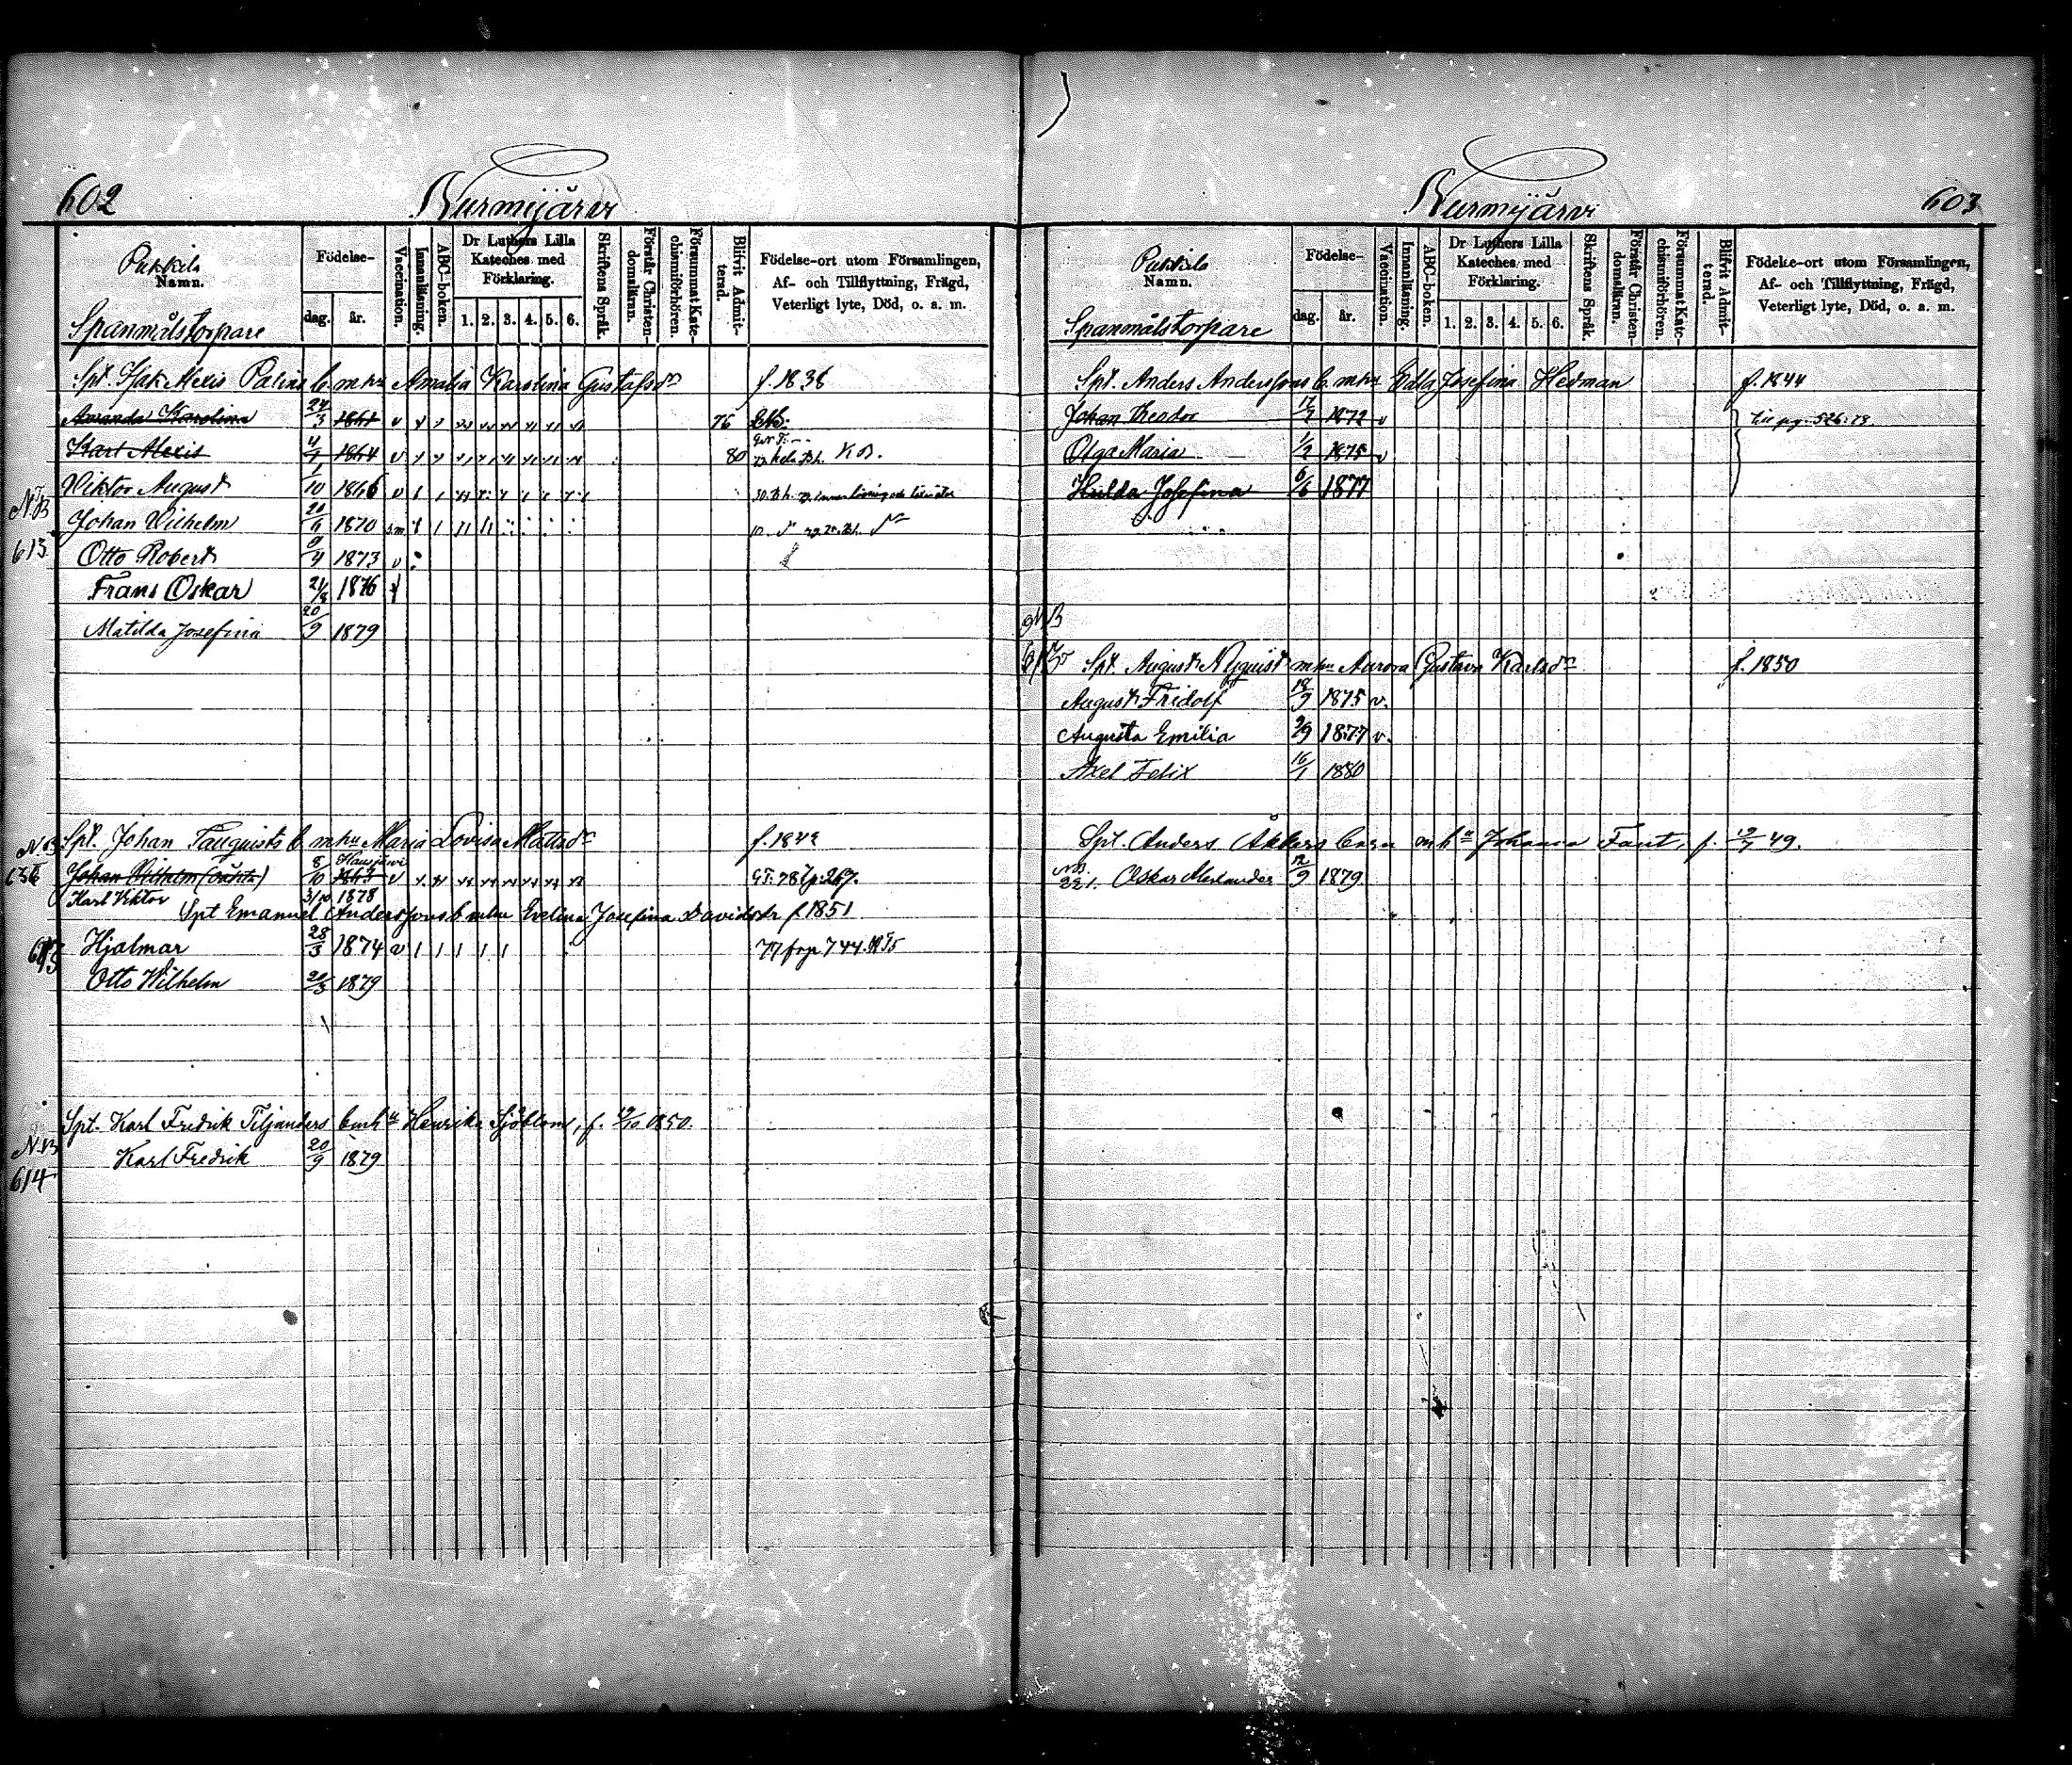 602
Nurmijärvi
Pukkila
Namn.
Spanmålstorpare
Födelse-
dag.
år.
Vaccination.
Innanläsning.
ABC-boken.
Dr Luthers Lilla
Kateches med
Förklaring.
1. 2. 3. 4. 5. 6.
Skriftens Språk.
Förstår Christen-
domsläran.
Försummat Kate-
chismiförhören.
Blifvit Admit-
terad.
Födelse-ort utom Församlingen,
Af- och Tillflyttning, Frägd,
Veterligt lyte, Död, o. a. m.
Spt. Isak Alexis Palins b. m. hu Amalia Karolina Gustafsdr f. 1836
Amanda Karolina 24/3 1861 v 76
Karl Alexis 4/7 1864 v 80
Viktor August 1/10 1866 v
NB Johan Vilhelm 1870
613 Otto Robert 9/4 1873 v
Frans Oskar 1876
Matilda Josefina 20/9 1879
NB Spt. Johan Tauquists b m hu Maria Lovisa Mattsdr f. 1842
636 Johan Vilhelm 8/10 Hausjärvi 1863 v G.T. 78 Lp. 267.
Karl Viktor 3/10 1878
Spt Emanuel Anderssons b m hu Evelina Josefina Davidsdr f. 1851
Hjalmar 28/3 1874 v 77 fr p. 744.
Otto Wilhelm 1879
Spt. Karl Fredrik Tiljanders b m hu Henrika Sjöblom, f. 19/10 1850.
NB Karl Fredrik 20/9 1879
614
603
Nurmijärvi
Pukkila
Namn.
Spanmålstorpare
Födelse-
dag.
år.
Vaccination.
Innanläsning.
ABC-boken.
Dr Luthers Lilla
Kateches med
Förklaring.
1. 2. 3. 4. 5. 6.
Skriftens Språk.
Förstår Christen-
domsläran.
Försummat Kate-
chismiförhören.
Blifvit Admit-
terad.
Födelse-ort utom Församlingen,
Af- och Tillflyttning, Frägd,
Veterligt lyte, Död, o. a. m.
Spt. Anders Anderssons b. m hu Edla Josefina Hedman f. 1844
Johan Theodor 1872 v till pag. 526: 78
Olga Maria 1/2 1875 v
Hulda Josefina 6/6 1877
NB
Spt. August Nyquist m hu Aurora Gustava Karlsdr f. 1850
August Fridolf 18/9 1875 v.
Augusta Emilia 2/9 1877 v.
Axel Felix 16/1 1880
Spt. Anders Åkkers barn m hu Johanna Fant, f. 49.
NB Oskar Alexander 12/9 1879